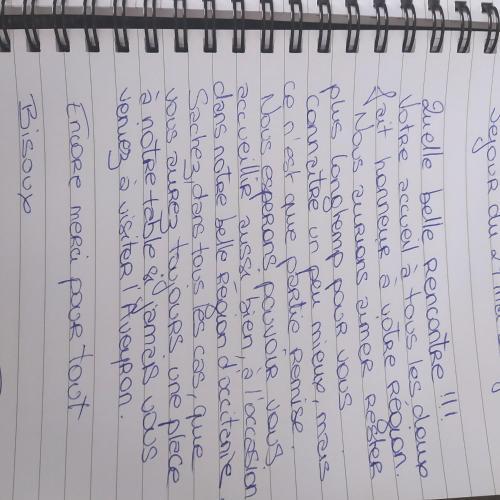 Séjour du 2
Quelle belle rencontre !!!
Votre accueil à tous les deux
fait honneur à votre région.
Nous aurions aimer rester
plus longtemp pour vous
connaître un peu mieux, mais
ce n'est que partie remise.
Nous espérons pouvoir vous
accueillir aussi bien, à l'occasion
dans notre belle région d'occitanie.
Sachez, dans tous les cas, que
vous aurez toujours une place
à notre table si jamais vous
veniez à visiter l'Aveyron.
Encore merci pour tout
Bisoux